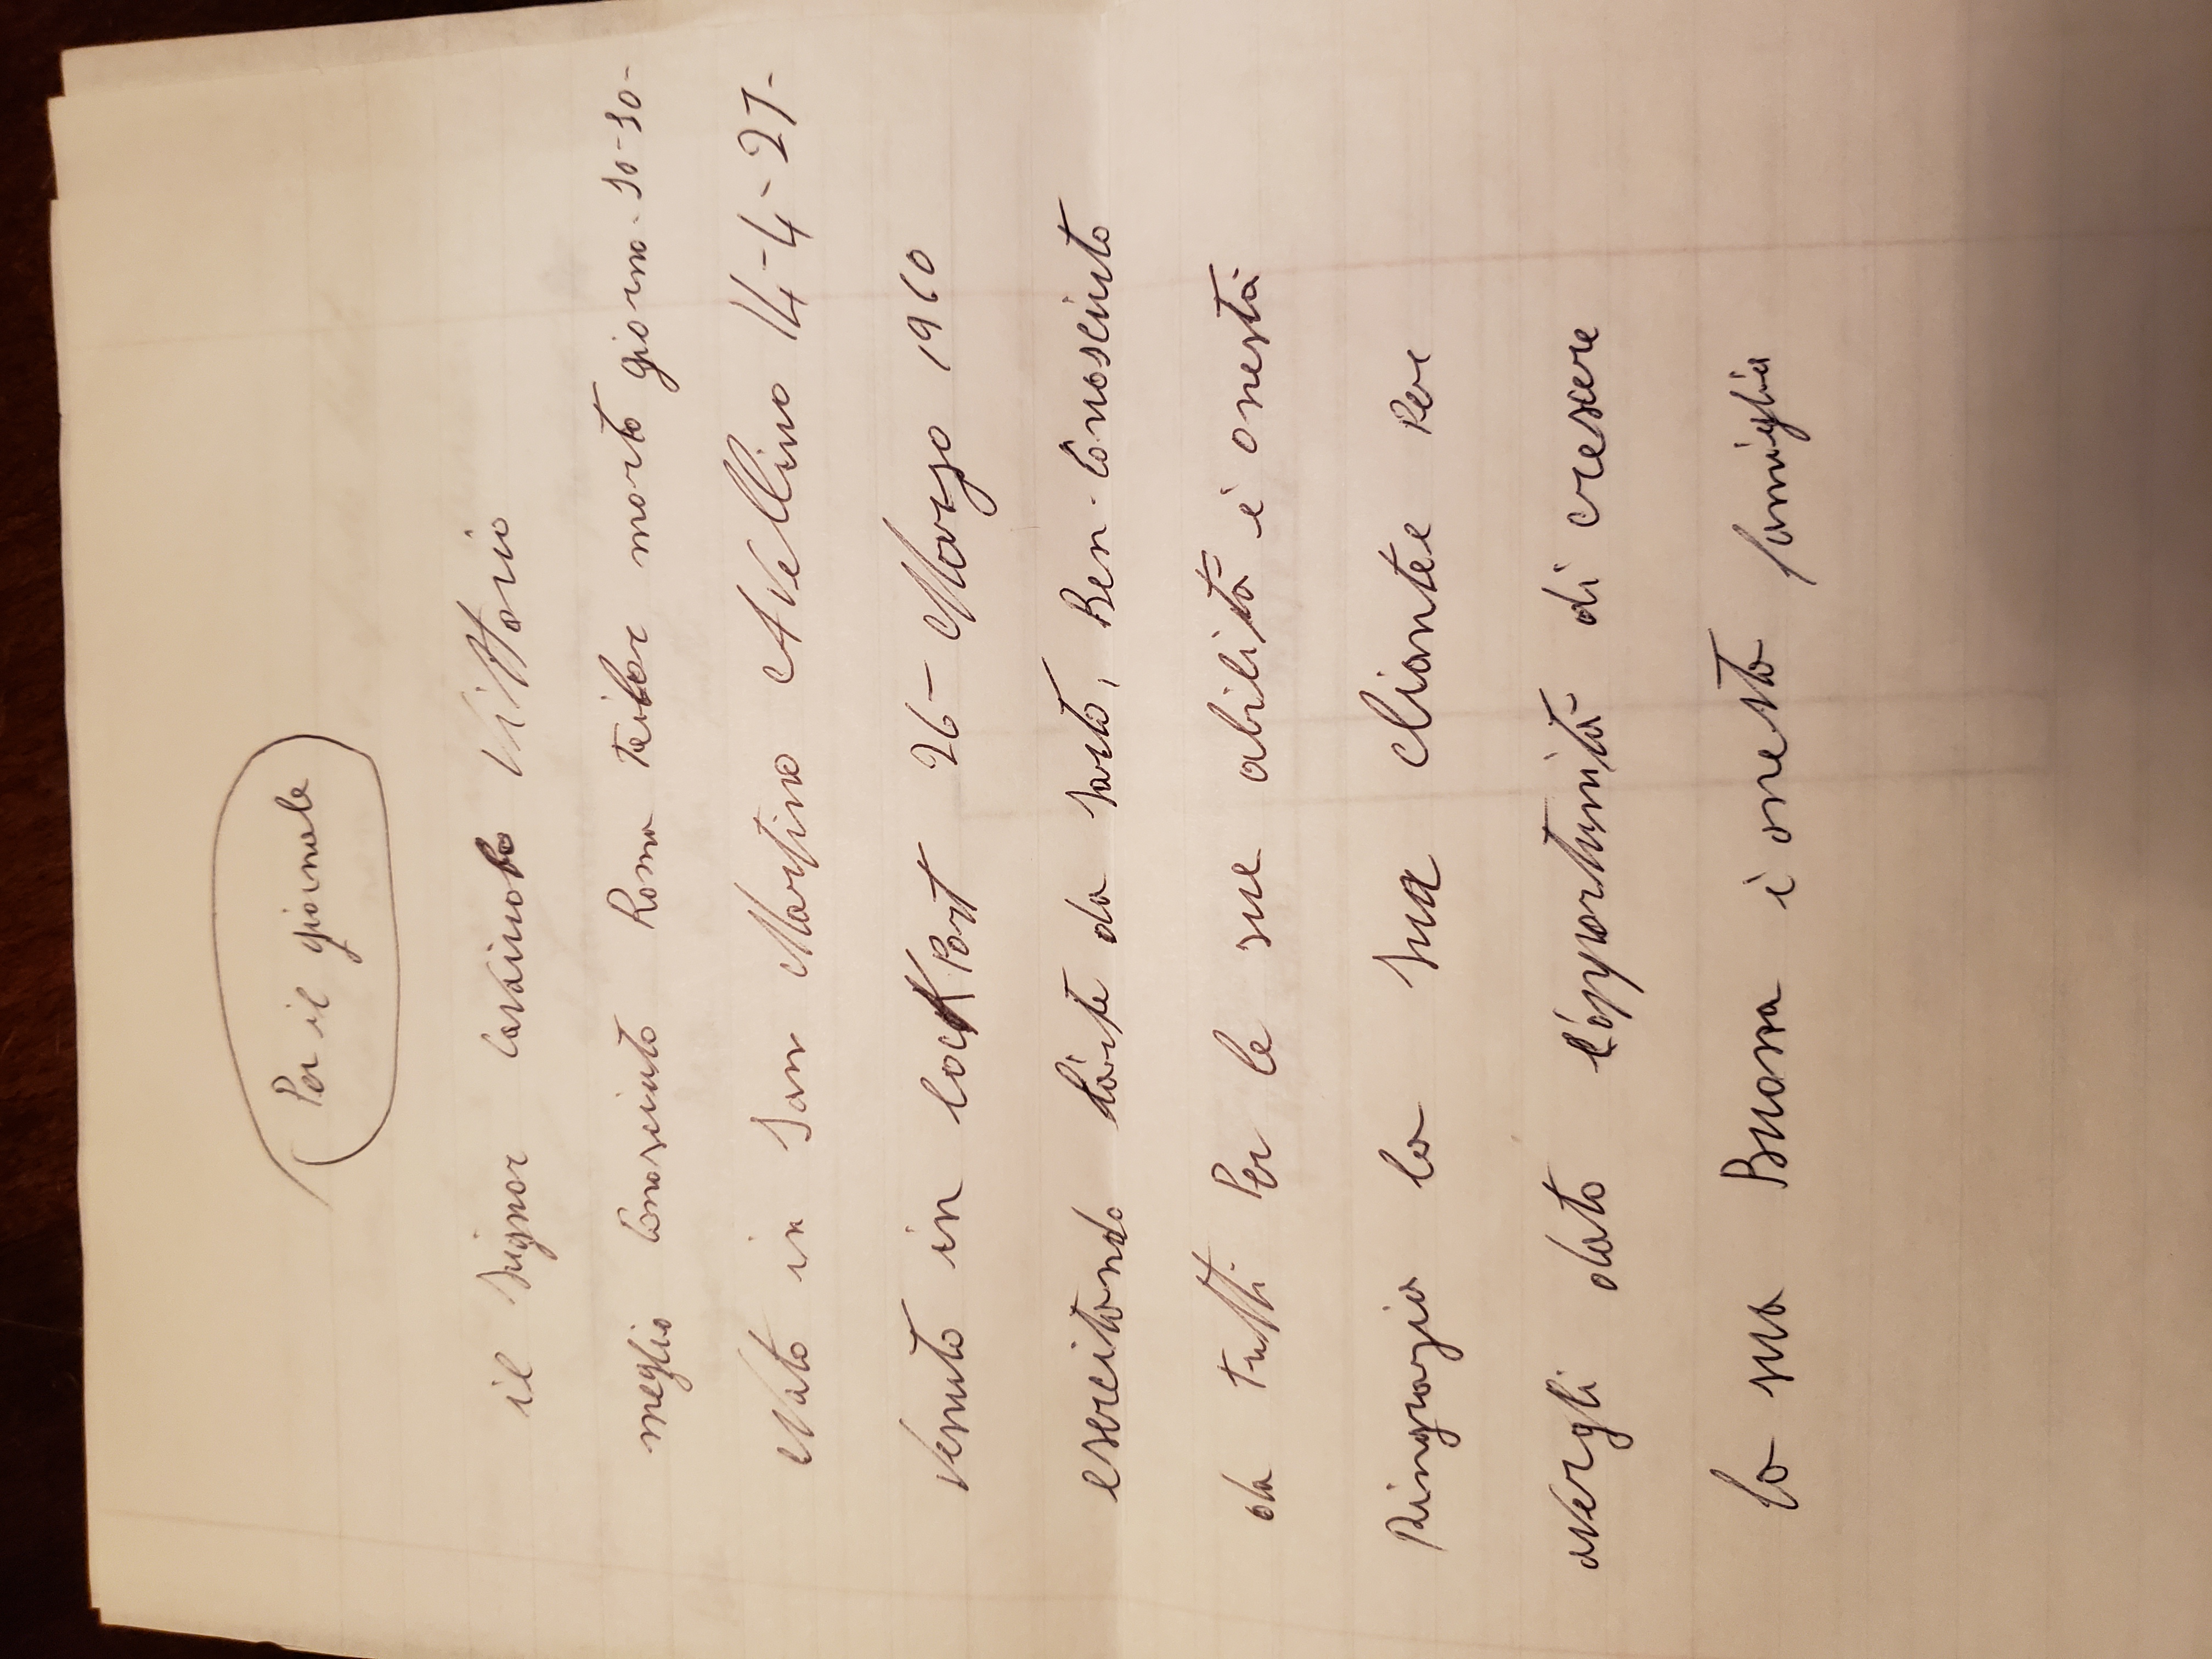 Per il giornale
il signor Vittorio
meglio conosciuto Roma Teilor morto giorno-10-10-
Nato in San Martino Avellino 14-4-27-
Venuto in LocKPort 26- Marzo 1960
esercitando l'arte da sarto, Ben-Conosciuto
da tutti Per le sue abilità e onestà
Ringrazia la sua cliantee Per
avergli dato l'opportunità di cresere
la sua Buona e onesta famiglia